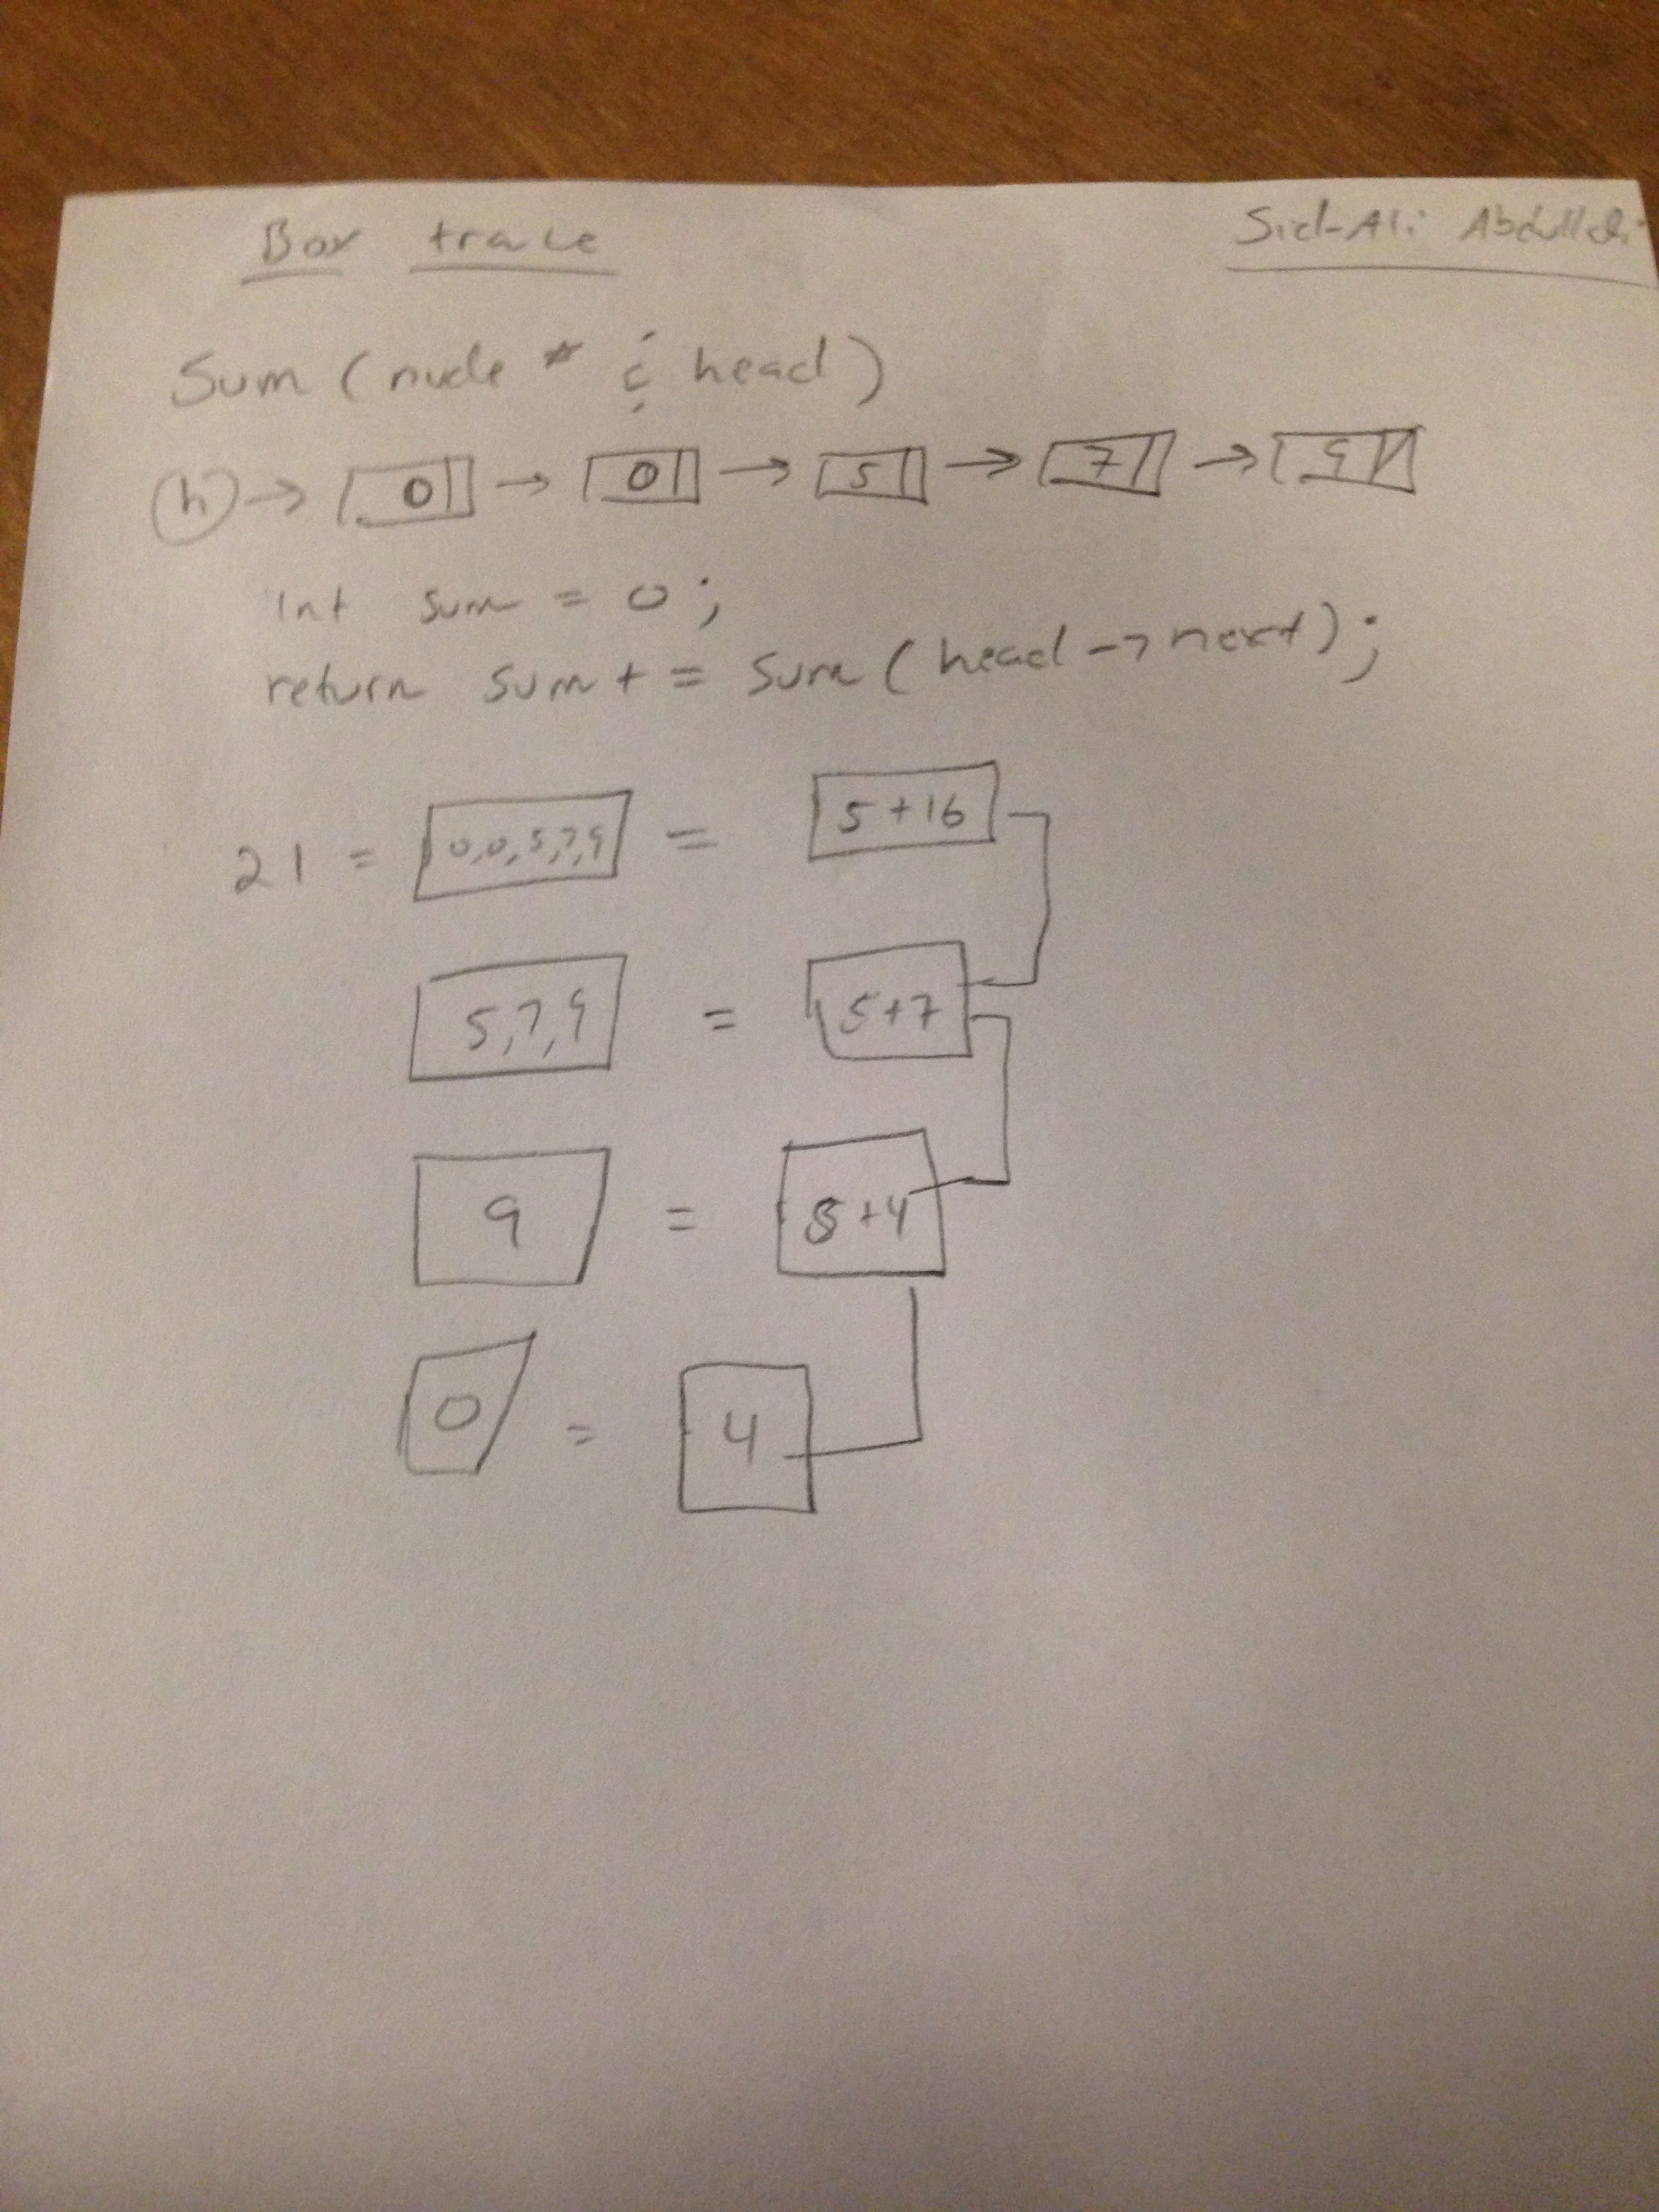 Box trace
Sid-Ali Abdullahi
Sum (node * & head)
h → 0 → 0 → 5 → 7 → 9
int sum = 0;
return sum + = sum (head -> next);
21 = 0,0,5,7,9 = 5 + 16
5,7,9 = 5+7
9 = +4
0 = 4